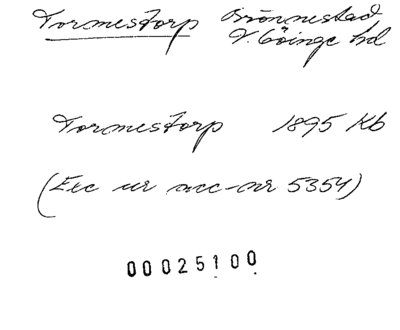 Tormestorp Brönnestad
V. Göinge hd
Tormestorp 1895 Kb
(Exc ur acc-nr 5354)
00025100